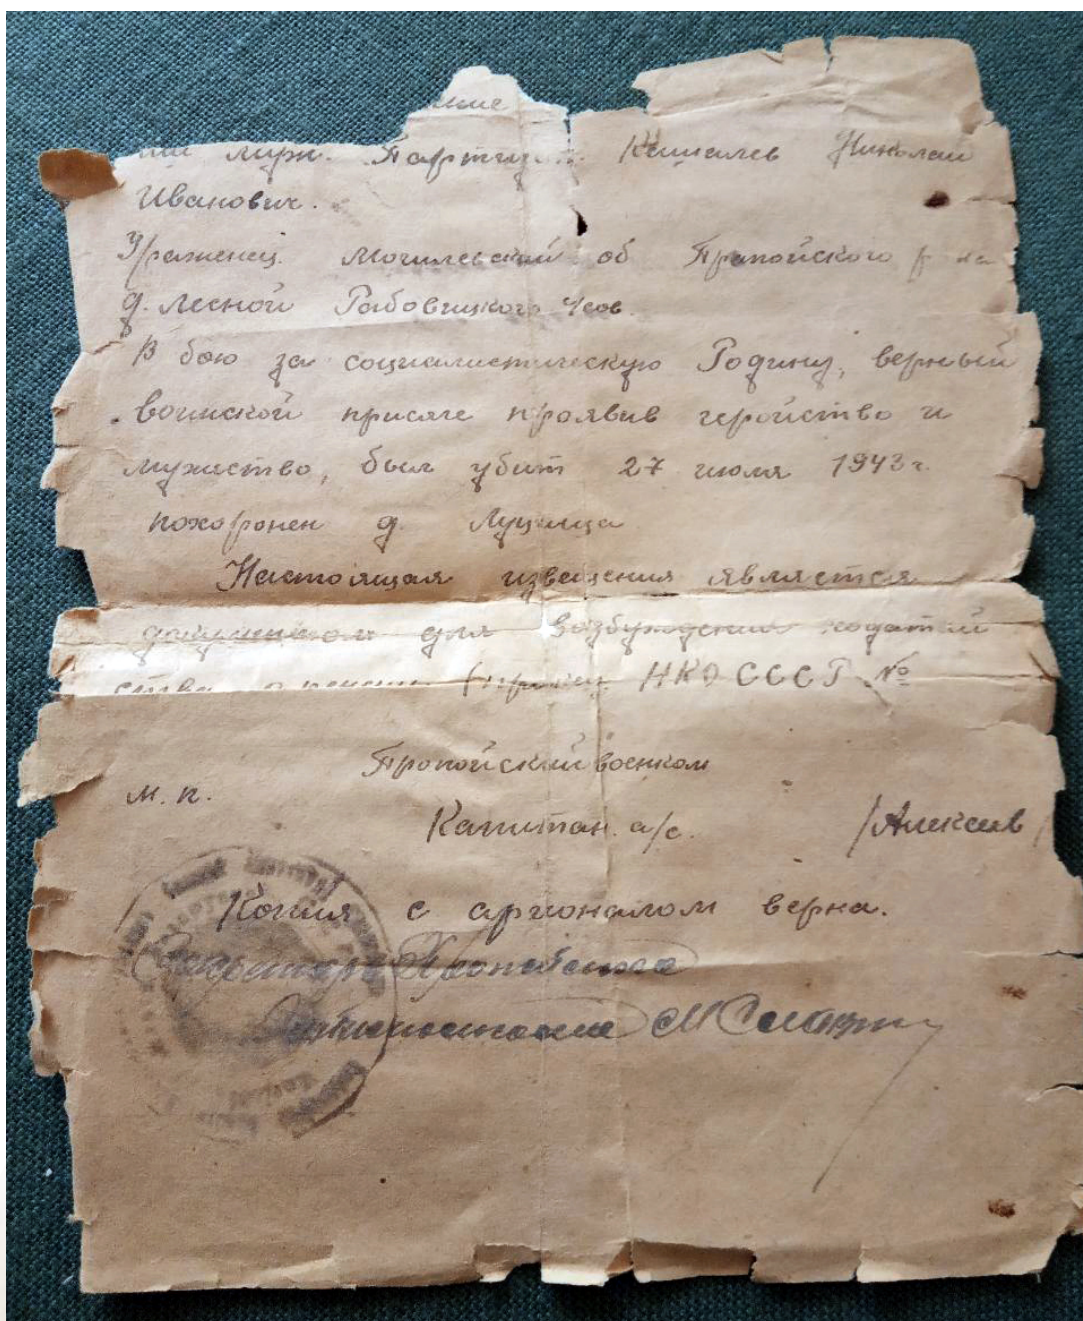 ние
муж. Партизан Кашалев Николай
Иванович.
Урженец. Могилевский об Пропойского р на
д. Лесной Рабовицкого Чсов.
В бою за социалистическую Родину, верный
воинской присяге проявив геройство и
мужество, был убит 27 июля 1943 г.
похоронен д. Лущица
Настоящая извещения является
документом для возбуждения ходатай
ства о пенсии (приказ НКО СССР №
Пропойский военком
м. п.
Капитан. а/с. /Алексеев/
Копия с аригоналом верна.
Секретарь Пропойского